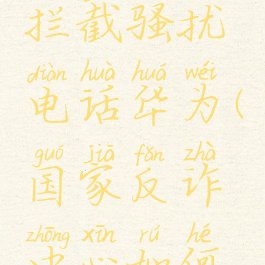 拦截骚扰
diàn huà huá wéi
电话华为(
guó jiā fǎn zhà
国家反诈
zhōng xīn rú hé
中心如何